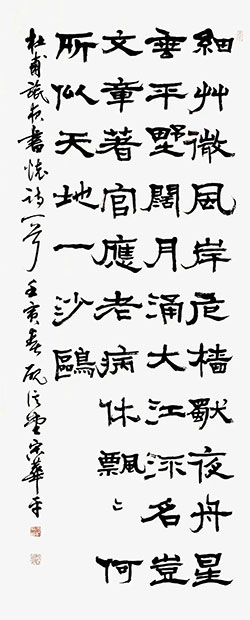 細艸微風岸危檣獨夜舟星
垂平野闊月涌大江流名豈
文章著官應老病休飄〻何
所似天地一沙鷗
杜甫旅夜書懷詩一首 壬寅春 華平